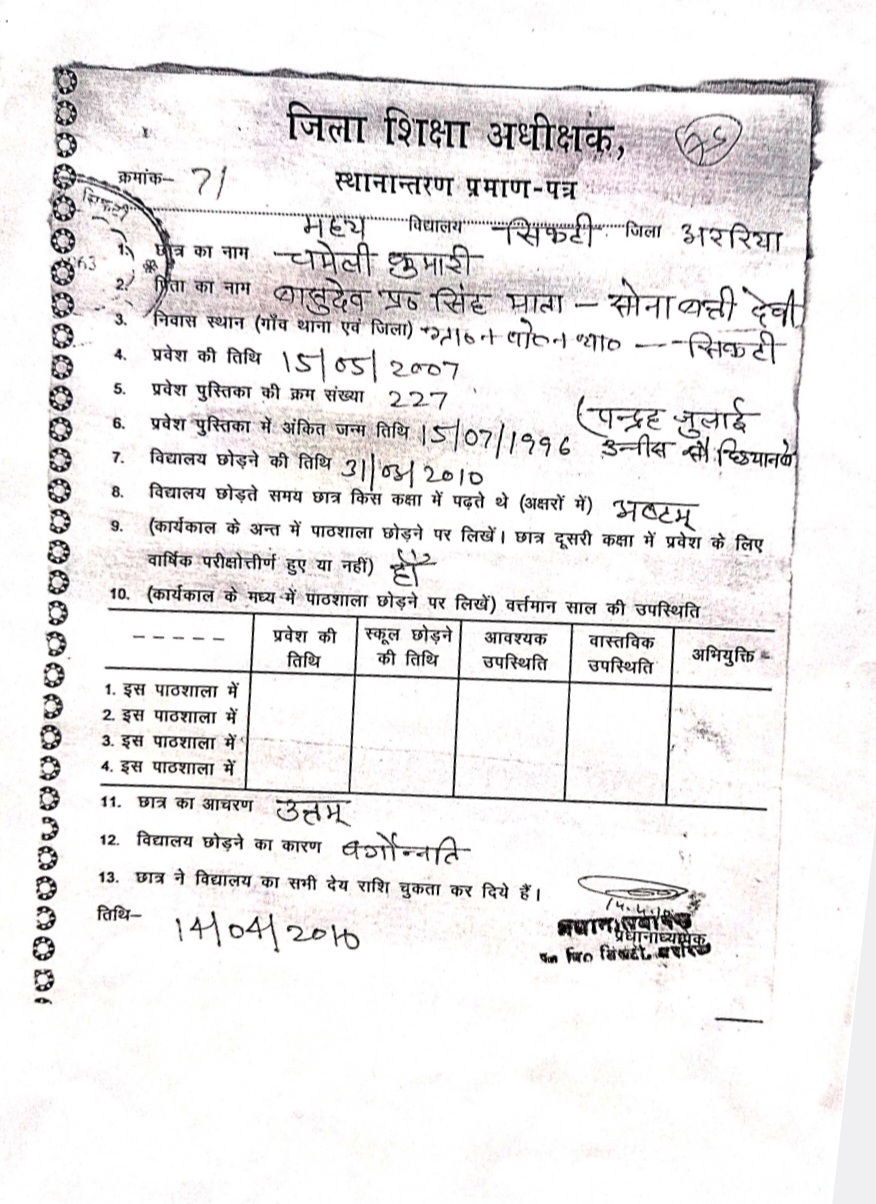 जिला शिक्षा अधीक्षक,
क्रमांक– 71 स्थानान्तरण प्रमाण-पत्र
मध्य विद्यालय सिकटी जिला अररिया
1. छात्र का नाम चमेली कुमारी
2. पिता का नाम बासुदेव प्र० सिंह माता – सोनाबत्ती देवी
3. निवास स्थान (गाँव थाना एवं जिला) सिकटी
4. प्रवेश की तिथि 15/05/2007
5. प्रवेश पुस्तिका की क्रम संख्या 227
(पन्द्रह जुलाई
6. प्रवेश पुस्तिका में अंकित जन्म तिथि 15/07/1996 उन्नीस सौ छियानवे
7. विद्यालय छोड़ने की तिथि 31/03/2010
8. विद्यालय छोड़ते समय छात्र किस कक्षा में पढ़ते थे (अक्षरों में) अष्टम्
9. (कार्यकाल के अन्त में पाठशाला छोड़ने पर लिखें। छात्र दूसरी कक्षा में प्रवेश के लिए
वार्षिक परीक्षोत्तीर्ण हुए या नहीं) हाँ
10. (कार्यकाल के मध्य में पाठशाला छोड़ने पर लिखें) वर्त्तमान साल की उपस्थिति
– – – – – प्रवेश की तिथि स्कूल छोड़ने की तिथि आवश्यक उपस्थिति वास्तविक उपस्थिति अभियुक्ति
1. इस पाठशाला में
2. इस पाठशाला में
3. इस पाठशाला में
4. इस पाठशाला में
11. छात्र का आचरण उत्तम्
12. विद्यालय छोड़ने का कारण वर्गोन्नति
13. छात्र ने विद्यालय का सभी देय राशि चुकता कर दिये हैं।
तिथि– 14/04/2010
प्रधानाध्यापक